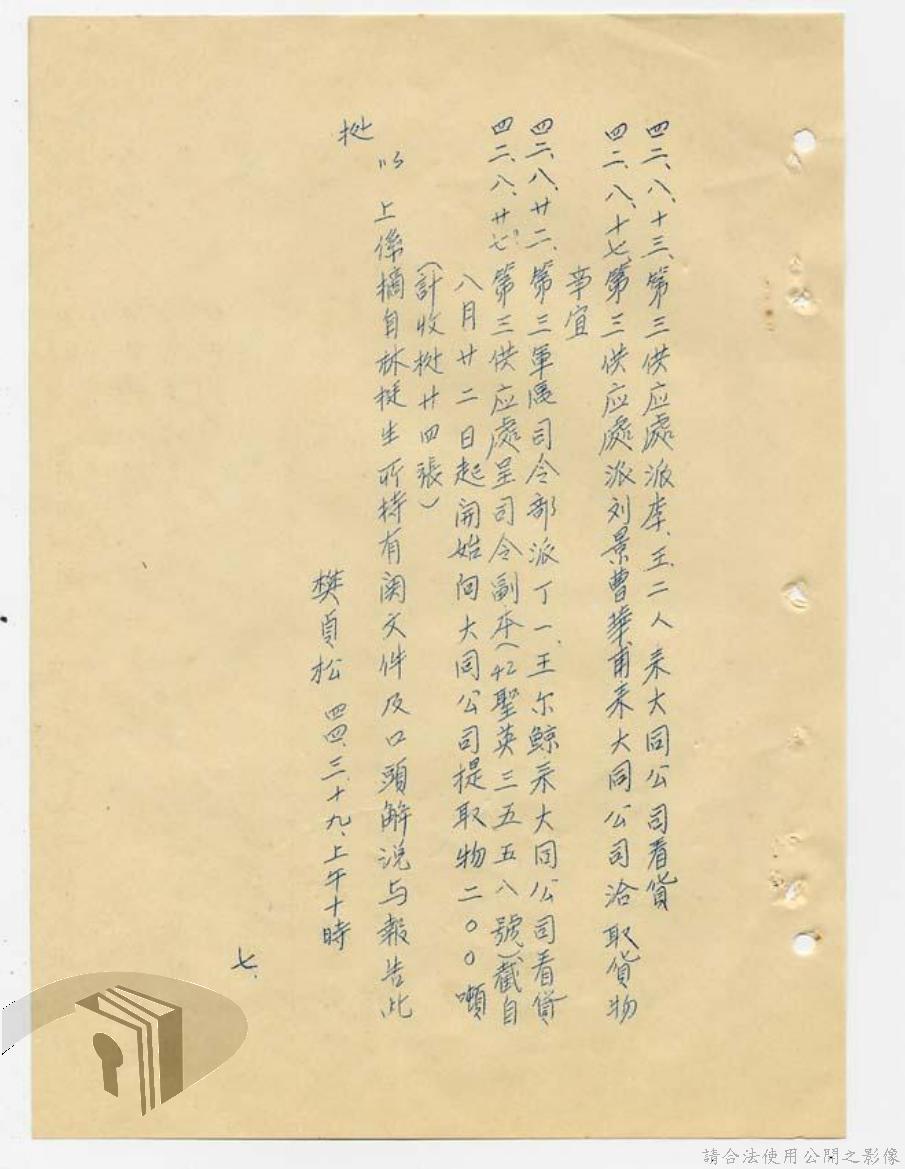 四二、八、十三、第三供应處派李、王二人来大同公司看貨
四二、八、十七、第三供应處派刘景曹華甫来大同公司洽取貨物
事宜
四二、八、廿二、第三軍區司令部派丁一、王尔鲸来大同公司看貨
四二、八、廿七、第三供应處呈司令副本（42聖英三五五八號）截自
八月廿二日起開始向大同公司提取物二〇〇噸
（計收據廿四張）
以上係摘自林挺生所持有関文件及口頭解説与報告此
樊貞松 四四、三、十九、上午十時
七、
請合法使用公開之影像